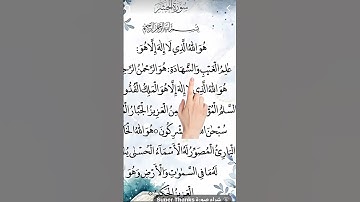 سورة الحشر
بسم الله الرحمن الرحيم
هُوَ اللهُ الَّذِي لَا إِلٰهَ إِلَّا هُوَ:
عٰلِمُ الْغَيْبِ وَالشَّهَادَةِ: هُوَ الرَّحْمٰنُ
هُوَ اللهُ الَّذِي لَا إِلٰهَ إِلَّا هُوَ الْمَلِكُ
السَّلٰمُ الْعَزِيزُ الْجَبَّارُ
سُبْحٰنَ هُوَ اللهُ
الْبَارِئُ الْمُصَوِّرُ لَهُ الْأَسْمَاءُ الْحُسْنٰى
لَهُ مَا فِي السَّمٰوٰتِ وَالْأَرْضِ وَهُوَ
الْعَزِيزُ
Super Thanks